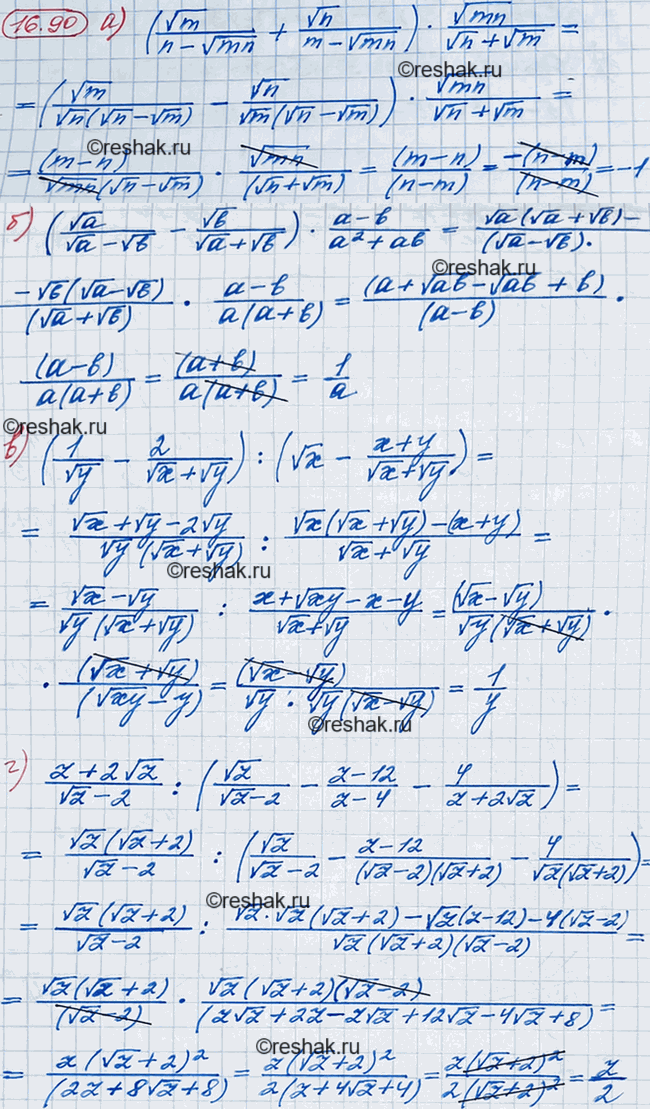 16.90 а) (√m/(n − √mn) + √n/(m − √mn)) · √mn/(√n + √m) =
©reshak.ru
= (√m/(√n(√n − √m)) − √n/(√m(√n − √m))) · √mn/(√n + √m) =
©reshak.ru
= (m − n)/(√mn(√n − √m)) · √mn/(√n + √m) = (m − n)/(n − m) = −(n − m)/(n − m) = −1
б) (√a/(√a − √b) − √b/(√a + √b)) · (a − b)/(a² + ab) = √a(√a + √b) −/(√a − √b) ·
©reshak.ru
−√b(√a − √b)/(√a + √b) · (a − b)/(a(a + b)) = (a + √ab − √ab + b)/(a − b) ·
(a − b)/(a(a + b)) = (a + b)/(a(a + b)) = 1/a
©reshak.ru
в) (1/√y − 2/(√x + √y)) : (√x − (x + y)/(√x + √y)) =
= (√x + √y − 2√y)/(√y(√x + √y)) : (√x(√x + √y) − (x + y))/(√x + √y) =
©reshak.ru
= (√x − √y)/(√y(√x + √y)) : (x + √xy − x − y)/(√x + √y) = (√x − √y)/(√y(√x + √y)) ·
· (√x + √y)/(√xy − y) = (√x − √y)/(√y · √y(√x − √y)) = 1/y
©reshak.ru
г) (z + 2√z)/(√z − 2) : (√z/(√z − 2) − (z − 12)/(z − 4) − 4/(z + 2√z)) =
= √z(√z + 2)/(√z − 2) : (√z/(√z − 2) − (z − 12)/((√z − 2)(√z + 2)) − 4/(√z(√z + 2))) =
©reshak.ru
= √z(√z + 2)/(√z − 2) : (√z · √z(√z + 2) − √z(z − 12) − 4(√z − 2))/(√z(√z + 2)(√z − 2)) =
= √z(√z + 2)/(√z − 2) · √z(√z + 2)(√z − 2)/(z√z + 2z − z√z + 12√z − 4√z + 8) =
©reshak.ru
= z(√z + 2)²/(2z + 8√z + 8) = z(√z + 2)²/(2(z + 4√z + 4)) = z(√z + 2)²/(2(√z + 2)²) = z/2